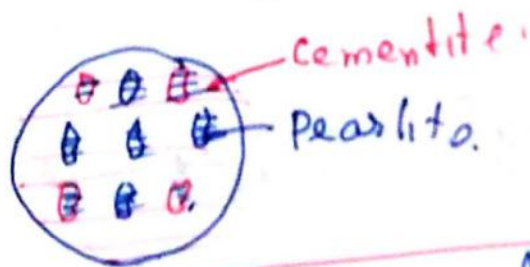 cementite.
pearlite.